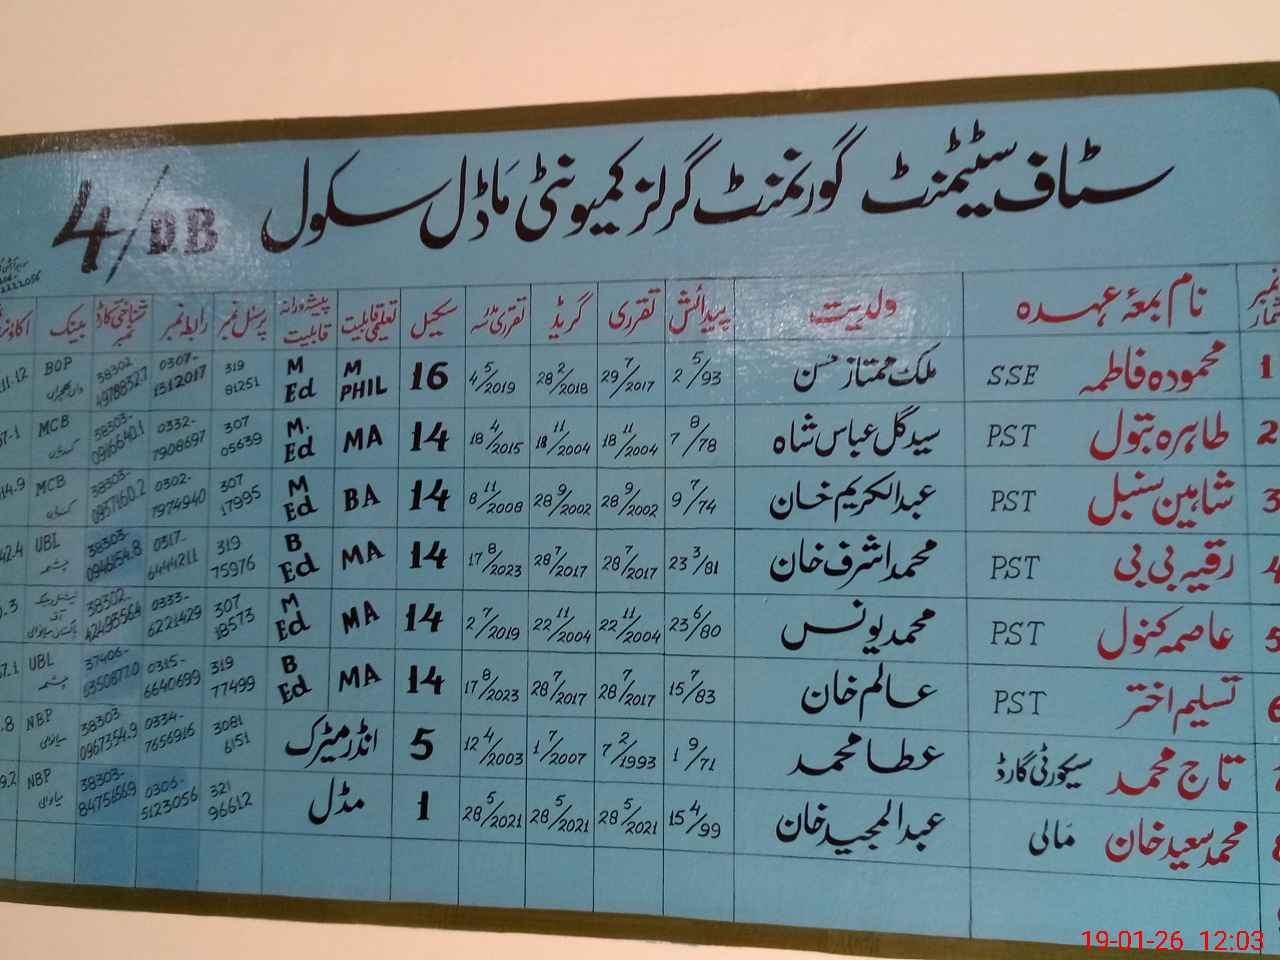 سٹاف سٹیٹمنٹ گورنمنٹ گرلز کمیونٹی ماڈل سکول 4/DB
نمبر شمار نام بمعۂ عہدہ ولدیت پیدائش تقرری گریڈ تقرری سکیل تعلیمی قابلیت پیشہ ورانہ قابلیت پرسنل نمبر رابطہ نمبر شناختی کارڈ نمبر بینک
1 محمودہ فاطمہ SSE ملک ممتاز حسن 2 5/93 29 7/2017 28 2/2018 4 5/2019 16 M PHIL M Ed 319 81251 0307-1312017 38302 4978852.7 BOP 11.12
2 طاہرہ بتول PST سید گل عباس شاہ 7 8/78 18 11/2004 18 11/2004 18 4/2015 14 MA M. Ed 307 05639 0332-7908697 38303- MCB
3 شاہین سنبل PST عبدالکریم خان 9 7/74 28 9/2002 28 9/2002 8 11/2008 14 BA M Ed 307 17995 0302-7974940 38303-0957160.2 MCB 14.9
4 رقیہ بی بی PST محمد اشرف خان 23 3/81 28 7/2017 28 7/2017 17 8/2023 14 MA B Ed 319 75976 0317-6444211 38303-0946154.8 UBL چشمہ 42.4
5 عاصمہ کنول PST محمد یونس 23 6/80 22 11/2004 22 11/2004 2 7/2019 14 MA M Ed 307 18573 0333-6221429 38302-4249556.4
6 تسلیم اختر PST عالم خان 15 7/83 28 7/2017 28 7/2017 17 8/2023 14 MA B Ed 319 77499 0315-6640699 37406-6350877.0 UBL چشمہ 57.1
تاج محمد سیکورٹی گارڈ عطا محمد 1 9/71 7 2/1993 1 7/2007 12 4/2003 5 انڈر میٹرک 3081 6151 0334-7656916 38303 0967354.9 NBP میانوالی .8
محمد سعید خان مالی عبدالمجید خان 15 4/99 28 5/2021 28 5/2021 28 5/2021 1 مڈل 321 96612 0306-5123056 38303-8475656.9 NBP میانوالی 9.2
19-01-26 12:03